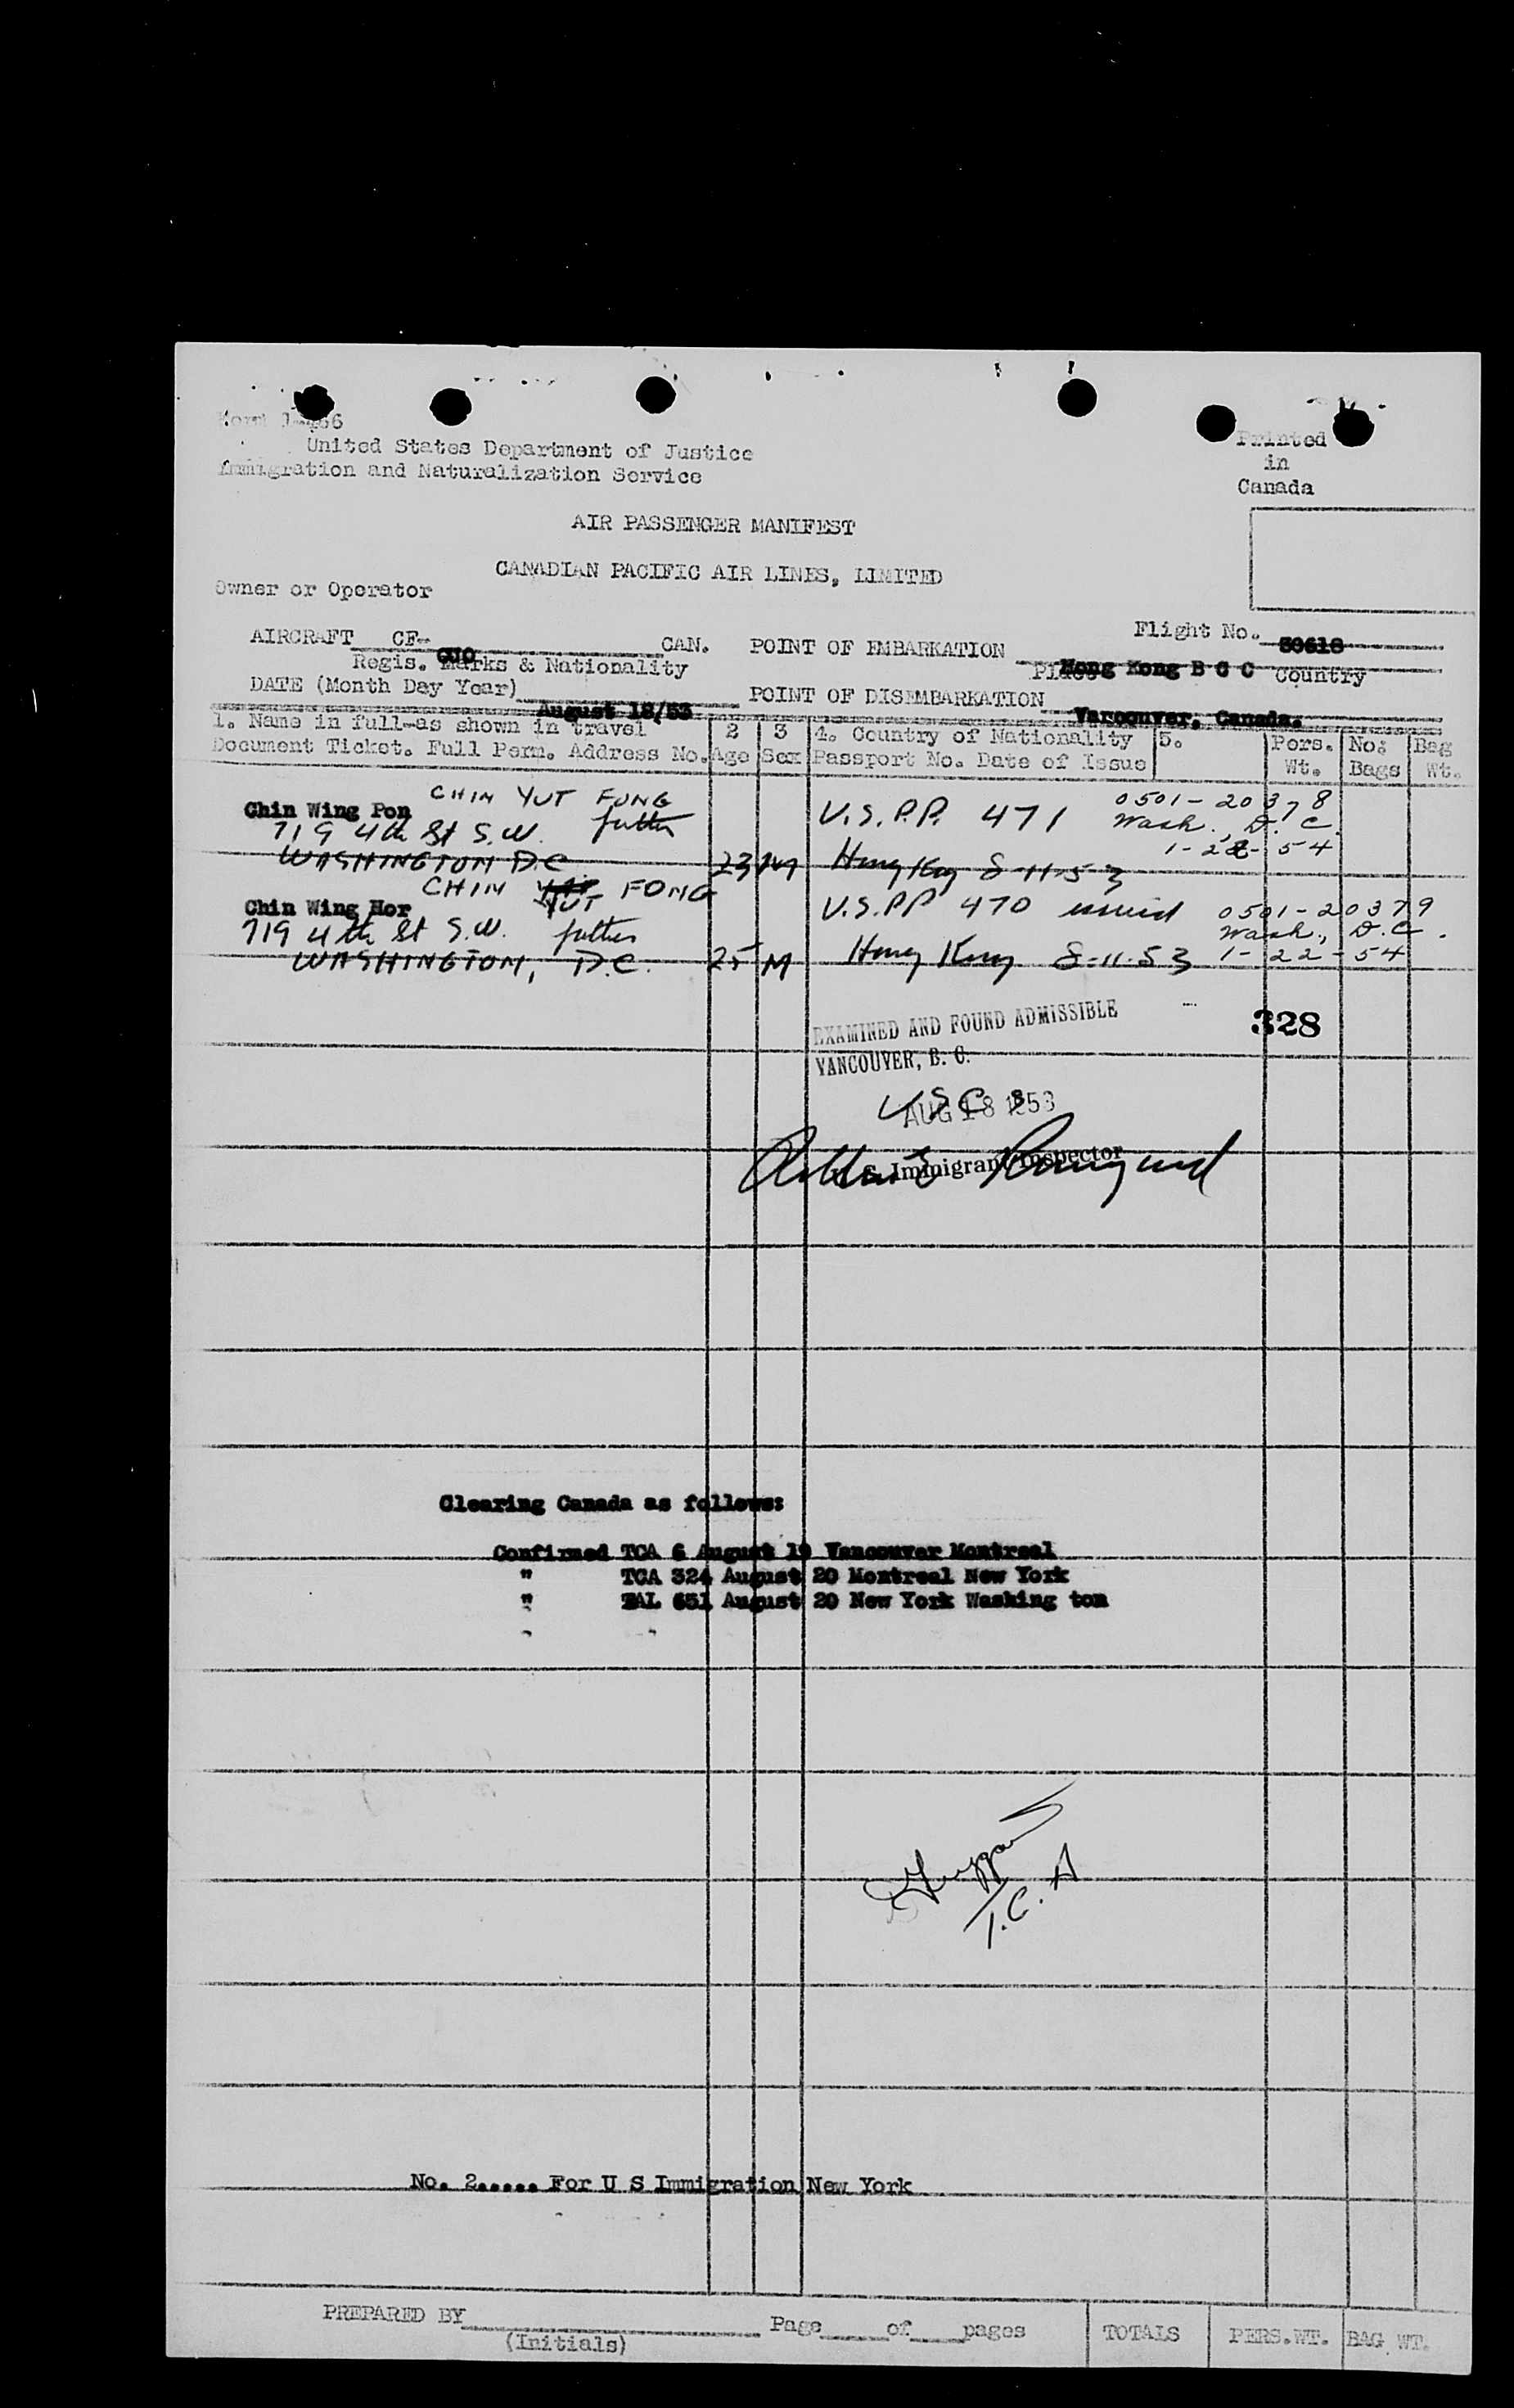 Form I-466
United States Department of Justice
Immigration and Naturalization Service
Printed
in
Canada
AIR PASSENGER MANIFEST
CANADIAN PACIFIC AIR LINES, LIMITED
Owner or Operator
AIRCRAFT CF- CUO CAN. POINT OF EMBARKATION Flight No.
Regis. Marks & Nationality Place Hong Kong B C C Country
DATE (Month Day Year) August 18/53 POINT OF DISEMBARKATION Varcouver. Canada.
1. Name in full-as shown in travel 2 3 4. Country of Nationality 5. Pers. No: Bag
Document Ticket. Full Perm. Address No. Age Sex Passport No. Date of Issue Wt. Bags Wt.
Chin Wing Pon CHIN YUT FONG V.S.P.P. 471 0501-20378
719 4th St S.W. father Wash., D.C.
WASHINGTON D.C 23 M Hong Kong 8-11-53 1-22-54
CHIN YUT FONG
Chin Wing Hor V.S.PP 470 issued 0501-20379
719 4th St S.W. father Wash., D.C.
WASHINGTON, D.C. 25 M Hong Kong 8-11-53 1-22-54
EXAMINED AND FOUND ADMISSIBLE 328
VANCOUVER, B. C.
USC
AUG 18 1953
U. S. Immigrant Inspector
Clearing Canada as follows:
Confirmed TCA 6 August 19 Vancouver Montreal
" TCA 324 August 20 Montreal New York
" EAL 651 August 20 New York Washing ton
T.C.A
No. 2..... For U S Immigration New York
PREPARED BY Page of pages TOTALS PERS.WT. BAG WT.
(Initials)